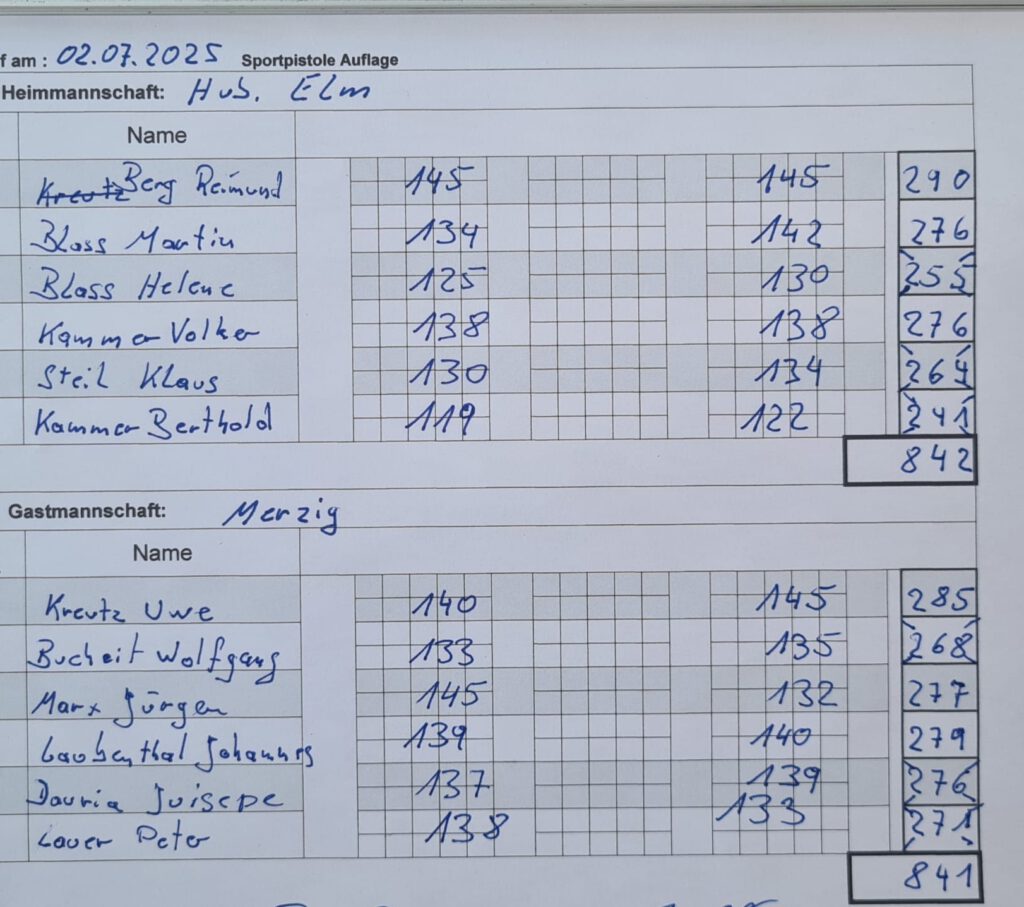 f am : 02.07.2025 Sportpistole Auflage
Heimmannschaft: Hub. Elm
Name
Kreutz Berg Reimund 145 145 290
Blass Martin 134 142 276
Blass Helene 125 130 255
Kammer Volker 138 138 276
Steil Klaus 130 134 264
Kammer Berthold 119 122 241
842
Gastmannschaft: Merzig
Name
Kreutz Uwe 140 145 285
Bucheit Wolfgang 133 135 268
Marx Jürgen 145 132 277
Laubenthal Johannes 139 140 279
Dauria Juisepe 137 139 276
Lauer Peter 138 133 271
841